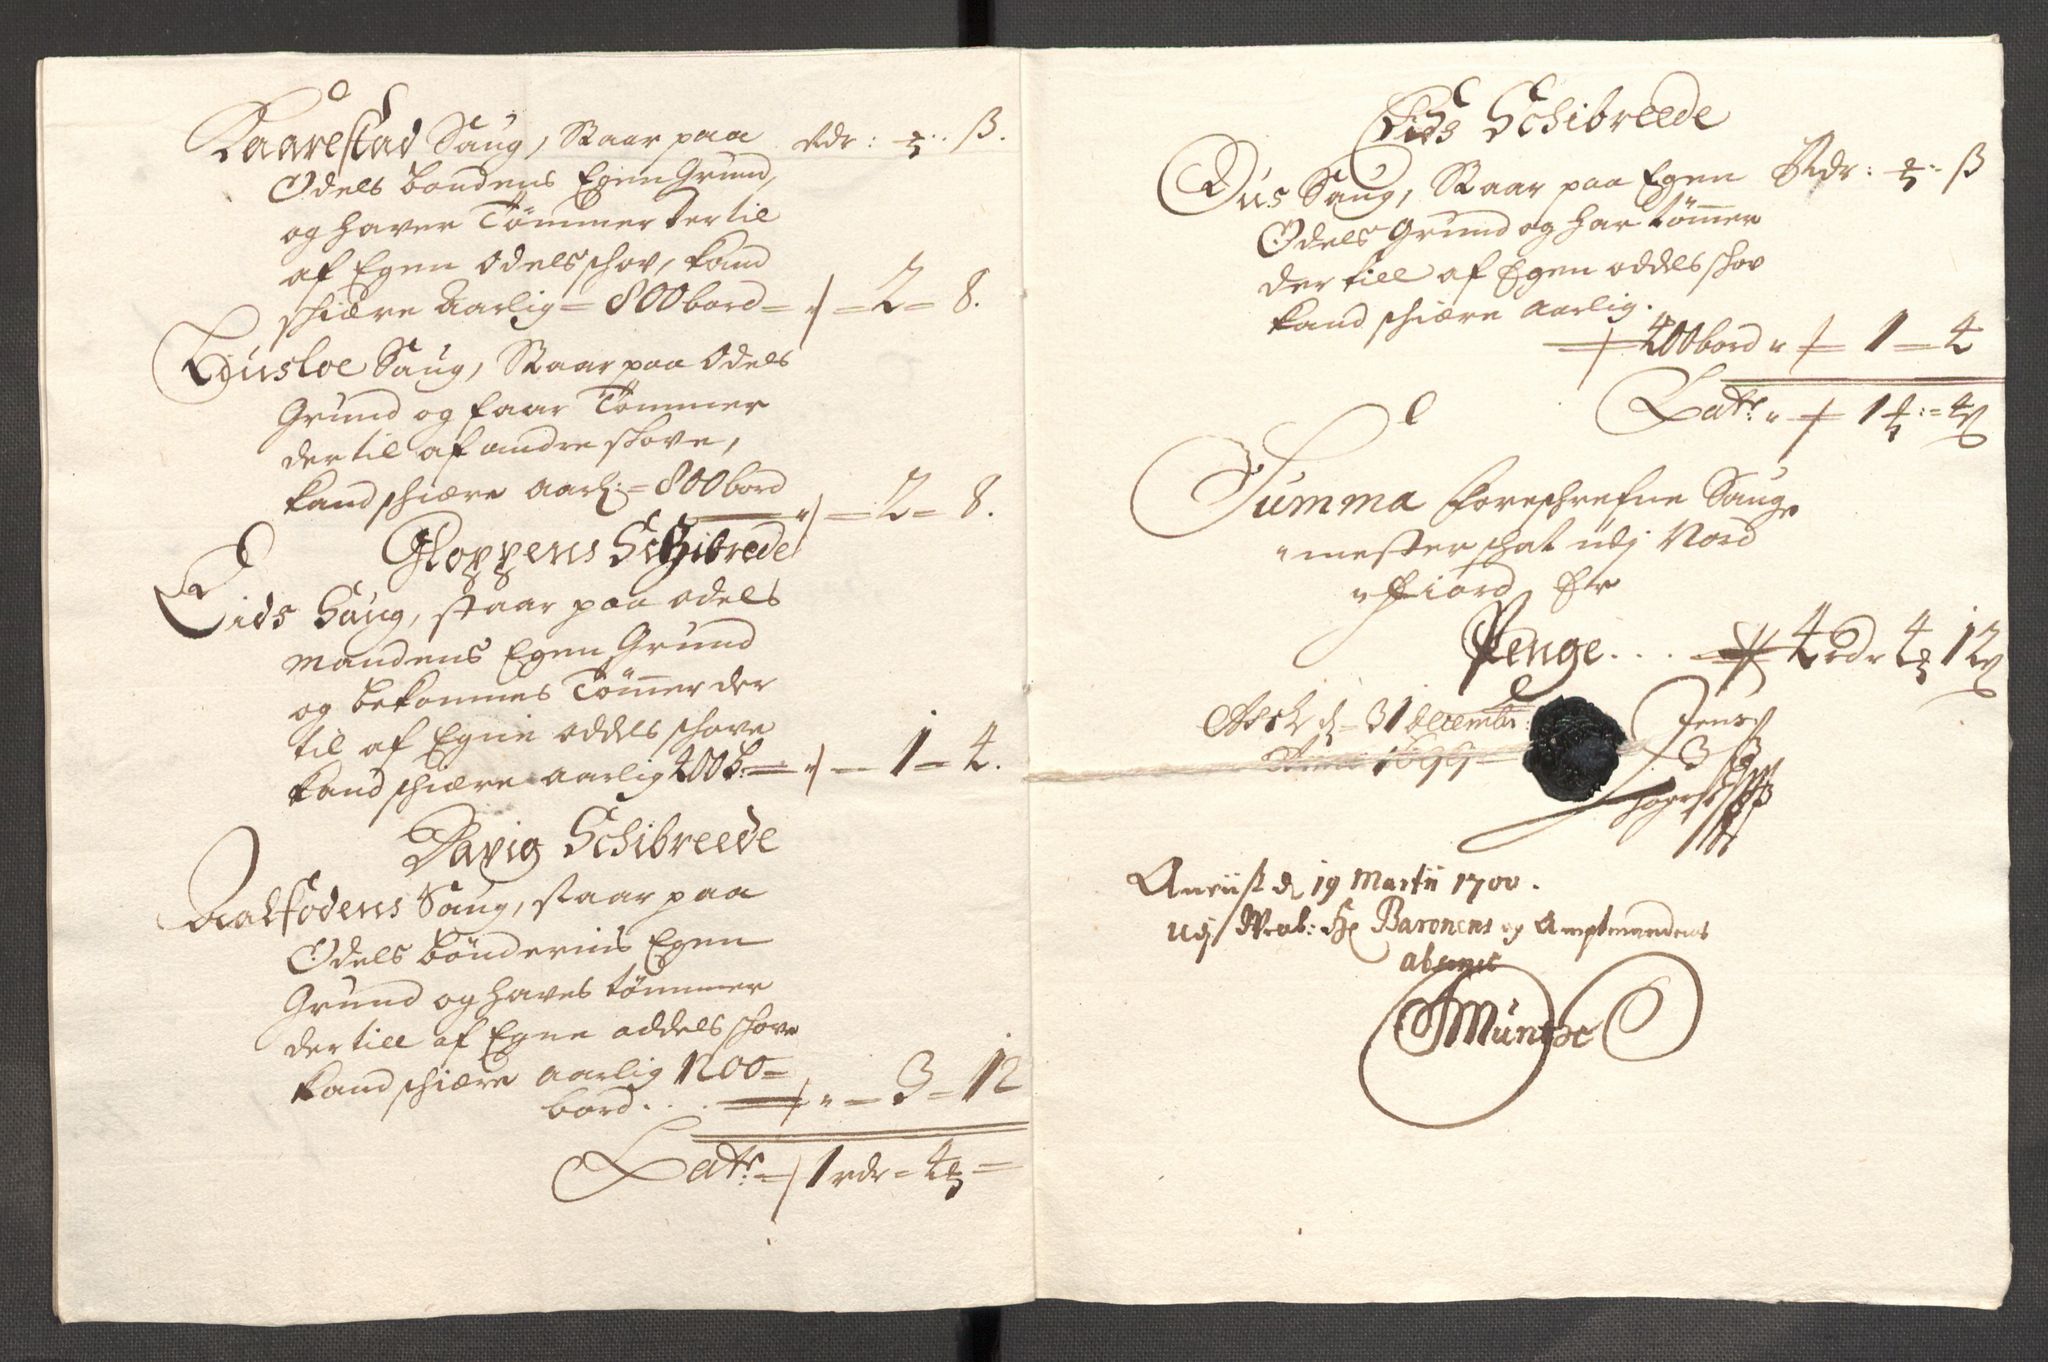 Kaarestad Saug, Staar paa Rdr: ß.
Odels bondens Egen Grund,
og haver Tömmer der til
af Egen Odels schov, kand
schiære Aarlig = 800 bord = " = 2 = 8.
Saug, Staar paa Odels
Grund og faar Tömmer
der til af andre skove,
kand schiære aarl: = 800 bord " = 2 = 8.
Gloppens Schibrede
Eids Saug, staar paa odels
mandens Egen Grund
og bekommes Tömer der
til af Egne oddels schove
kand schiære aarlig 400 b. = " = 1 = 4.
Davig Schibreede
Aalfodens Saug, staar paa
Odels böndernis Egen
Grund og haves tömmer
der till af Egne oddels skove
kand schiære aarlig 1200 =
bord . . . " = 3 = 12
Latr = 1 rdr =
Eids Schibreede
Saug, Staar paa Egen Rdr: ß
Odels Grund og har tömer
der till af Egen oddels skov
kand schiære aarlig.
400 bord " = 1 = 4
Latr: " = 1 = 4
Summa foreschrefne Saug
" mester schat udj Nord
" fiord Er
Penge . . . 4 rdr 4 12
Ask d = 31 decembr:
Anno 1699 =
Jens
d 19 Martii 1700.
udj Hr Baronens og Amptmandens
absence
Münthe